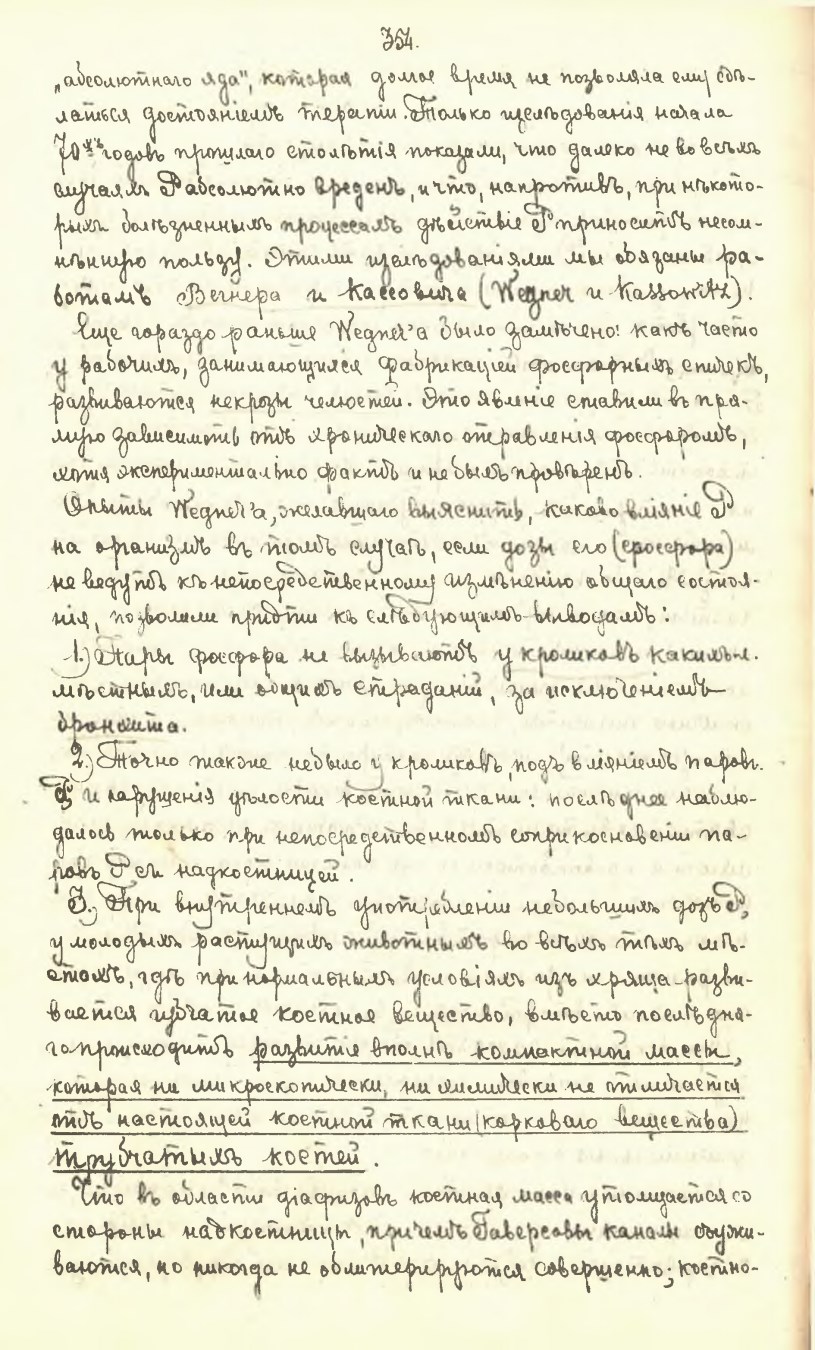 354.
„абсолютнаго яда", которая долгое время не позволяла ему сдѣ-
латься достояніемъ терапіи. Только изслѣдованія начала
70ыхъ годовъ прошлаго столѣтія показали, что далеко не во всѣхъ
случаяхъ P абсолютно вреденъ, и что, напротивъ, при нѣкото-
рыхъ болѣзненныхъ процессахъ дѣйствіе P приноситъ несом-
нѣнную пользу. Этими изслѣдованіями мы обязаны ра-
ботамъ Вегнера и Кассовича (Wegner и Kassowitz).
Еще гораздо раньше Wegner'а было замѣчено: какъ часто
у рабочихъ, занимающихся фабрикаціей фосфорныхъ спичекъ,
развиваются некрозы челюстей. Это явленіе ставили въ пря-
мую зависимость отъ хроническаго отравленія фосфоромъ,
хотя экспериментально фактъ и не былъ провѣренъ.
Опыты Wegner'а, желавшаго выяснить, каково вліяніе P
на организмъ въ томъ случаѣ, если дозы его (фосфора)
не ведутъ къ непосредственному измѣненію общаго состоя-
нія, позволили придти къ слѣдующимъ выводамъ:
1.) Пары фосфора не вызываютъ у кроликовъ какихъ-л.
мѣстныхъ, или общихъ страданій, за исключеніемъ
бронхита.
2.) Точно также не было у кроликовъ, подъ вліяніемъ паровъ
P и нарушенія цѣлости костной ткани: послѣднее наблю-
далось только при непосредственномъ соприкосновеніи па-
ровъ P съ надкостницей.
3.) При внутреннемъ употребленіи небольшихъ дозъ P,
у молодыхъ растущихъ животныхъ во всѣхъ тѣхъ мѣ-
стахъ, гдѣ при нормальныхъ условіяхъ изъ хряща разви-
вается губчатое костное вещество, вмѣсто послѣдня-
го происходитъ развитіе вполнѣ компактной массы,
которая ни микроскопически, ни химически не отличается
отъ настоящей костной ткани (корковаго вещества)
трубчатыхъ костей.
Что въ области діафизовъ костная масса утолщается со
стороны надкостницы, причемъ Гаверсовы каналы съужи-
ваются, но никогда не облитерируются совершенно; костно-